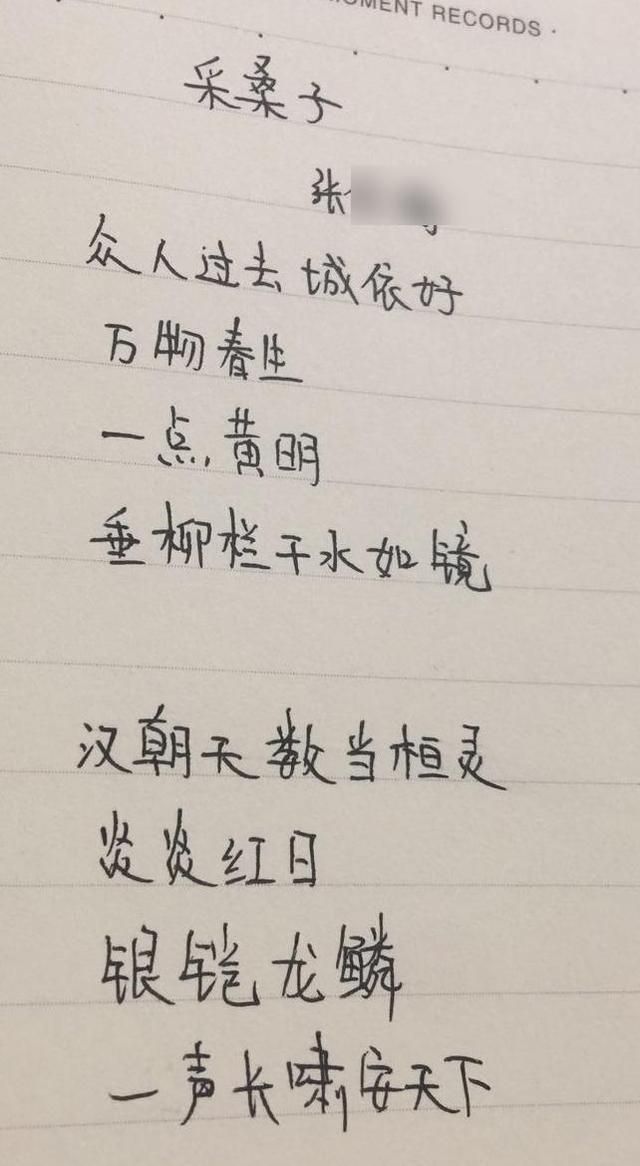 MENT RECORDS
采桑子
张
众人过去城依好
万物春生
一点黄明
垂柳栏干水如镜
汉朝天数当桓灵
炎炎红日
银铠龙鳞
一声长啸安天下